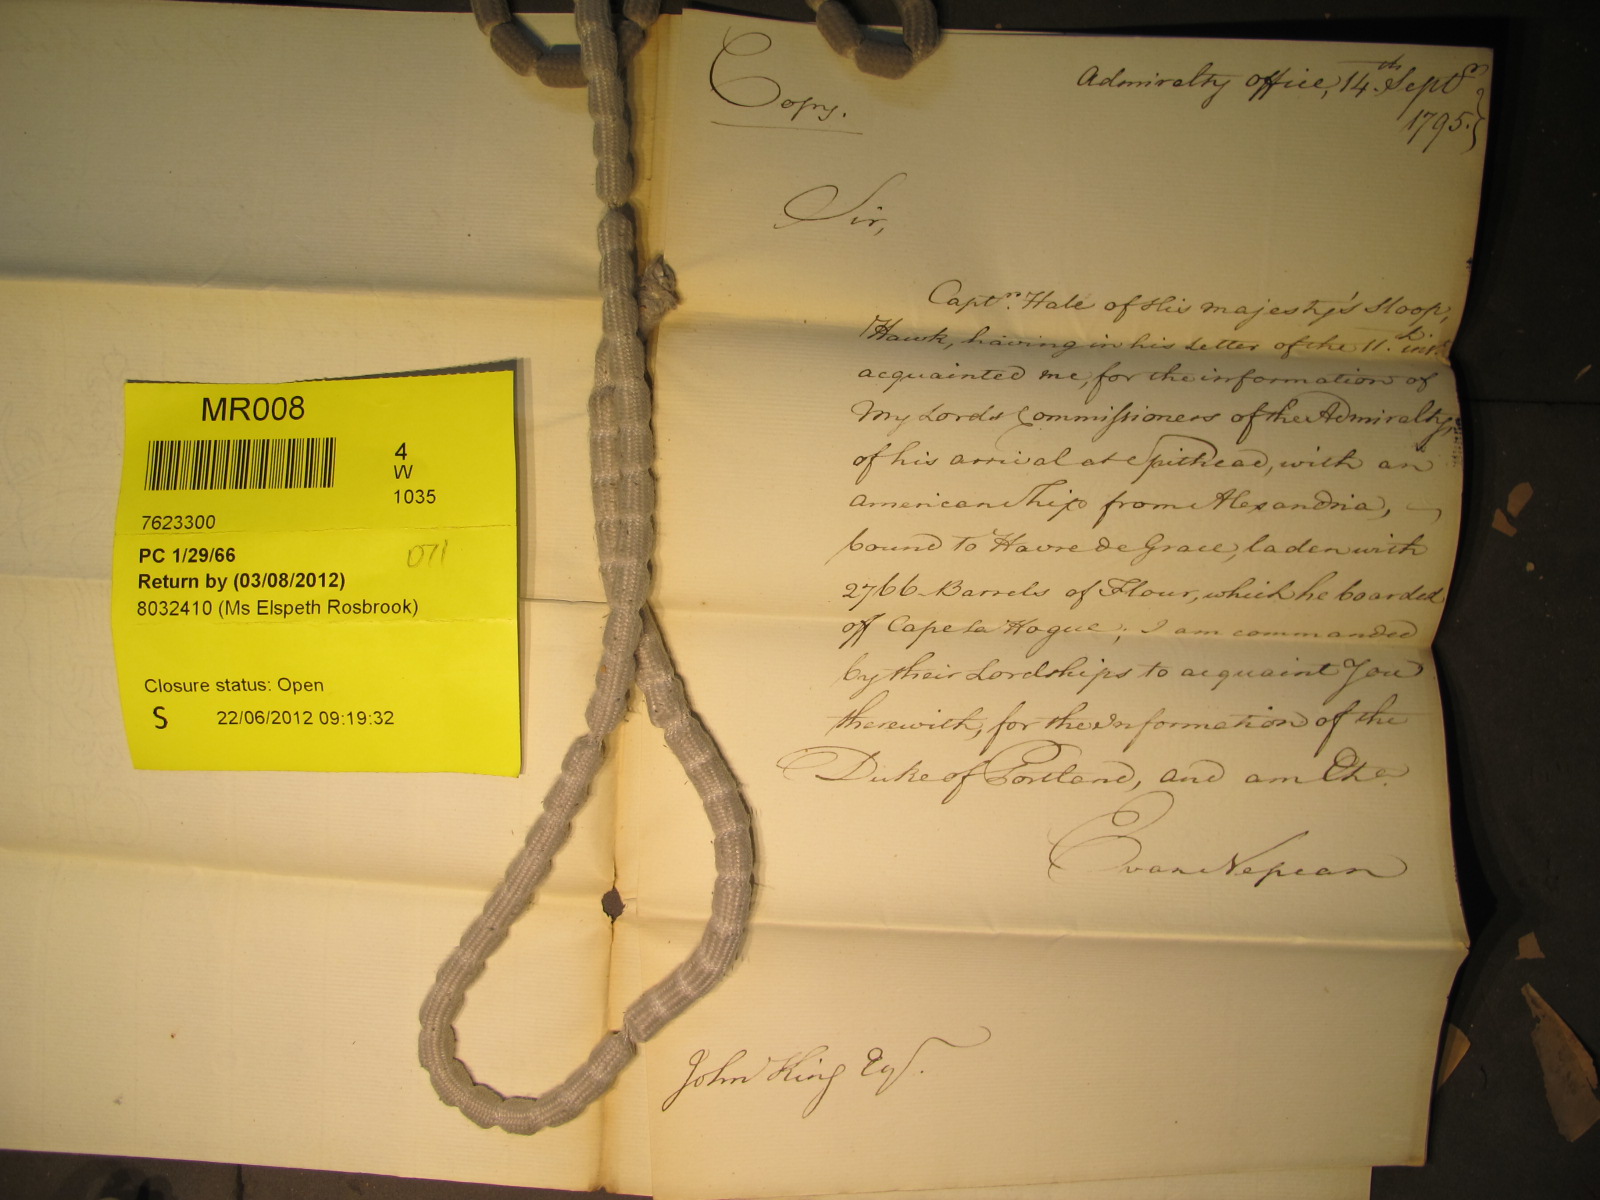 MR008
4
W
1035
7623300
PC 1/29/66
071
Return by (03/08/2012)
8032410 (Ms Elspeth Rosbrook)
Closure status: Open
S 22/06/2012 09:19:32
Copy.
Admiralty office, 14th. Septr
1795.
Sir,
Captn. Hale of His Majesty's Sloop,
Hawk, having in his Letter of the 11th. inst.
acquainted me, for the information of
My Lords Commissioners of the Admiralty
of his arrival at Spithead, with an
american Ship from Alexandria,
bound to Havre de Grace, laden with
2766 Barrels of Flour, which he boarded
off Cape la Hogue; I am commanded
by their Lordships to acquaint You
therewith, for the Information of the
Duke of Portland, and am &ca.
Evan Nepean
John King Esqr.